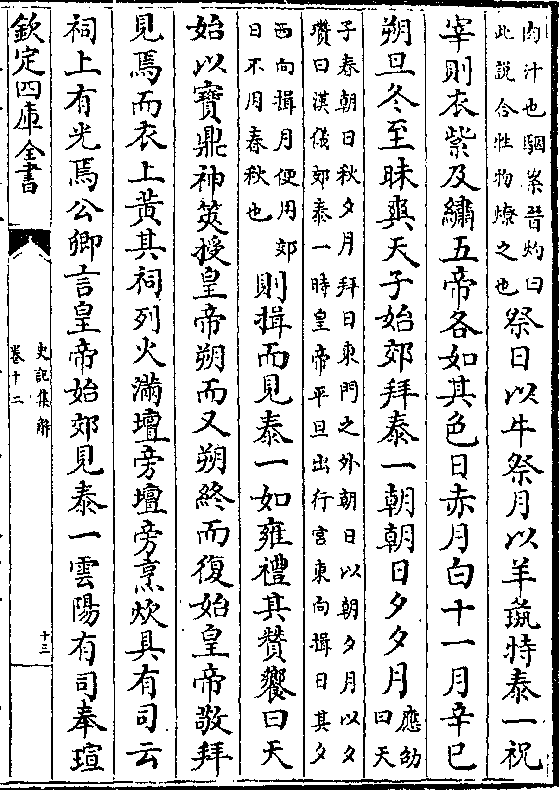 肉汁也駰案晉灼曰
此說合牲物燎之也
祭日以牛祭月以羊彘特泰一祝
宰則衣紫及繡五帝各如其色日赤月白十一月辛巳
朔旦冬至昧爽天子始郊拜泰一朝朝日夕夕月
應劭
曰天
子春朝日秋夕月拜日東門之外朝日以朝夕月以夕
瓚曰漢儀郊泰一時皇帝平旦出行宮東向揖日其夕
西向揖月便用郊
日不用春秋也
則揖而見泰一如雍禮其贊饗曰天
始以寶鼎神筴授皇帝朔而又朔終而復始皇帝敬拜
見焉而衣上黃其祠列火滿壇旁壇旁烹炊具有司云
祠上有光焉公卿言皇帝始郊見泰一雲陽有司奉瑄
欽定四庫全書
史記集解
卷十二
十三